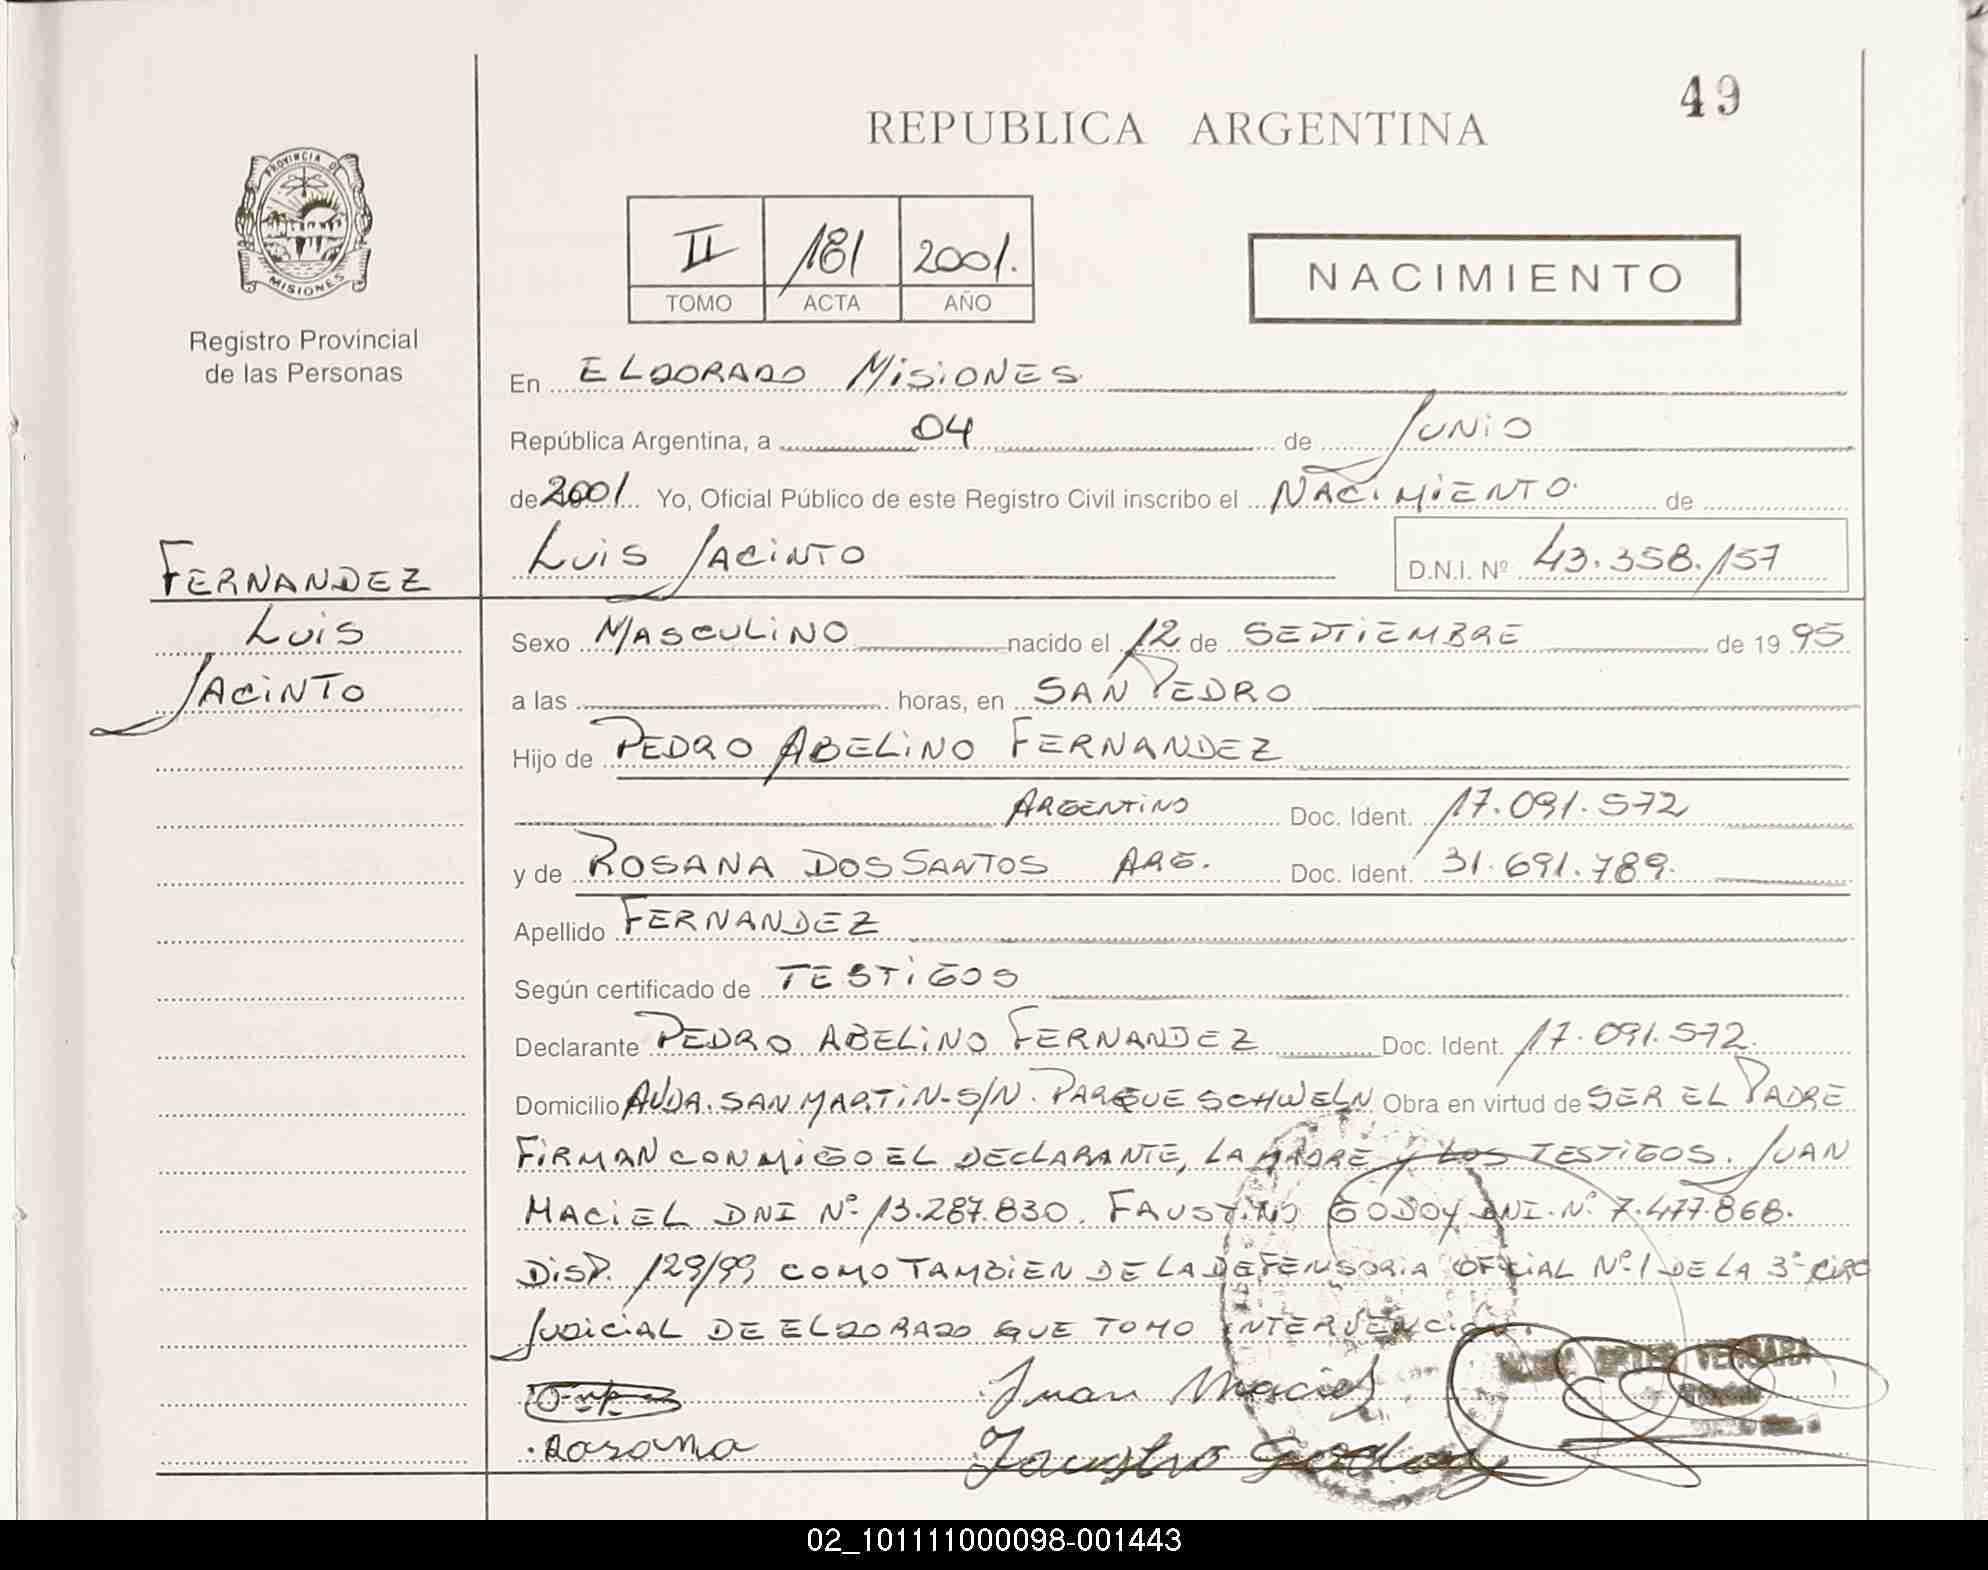 49
REPUBLICA ARGENTINA
PROVINCIA DE
MISIONES
Registro Provincial
de las Personas
II 181 2001.
TOMO ACTA AÑO
NACIMIENTO
En ELDORADO MISIONES
República Argentina, a 04 de JUNIO
de 2001. Yo, Oficial Público de este Registro Civil inscribo el NACIMIENTO de
LUIS JACINTO D.N.I. Nº 43.358.157
FERNANDEZ
LUIS
JACINTO
Sexo MASCULINO nacido el 12 de SEPTIEMBRE de 1995
a las horas, en SAN PEDRO
Hijo de PEDRO ABELINO FERNANDEZ
ARGENTINO Doc. Ident. 17.091.572
y de ROSANA DOS SANTOS ARG. Doc. Ident. 31.691.789.
Apellido FERNANDEZ
Según certificado de TESTIGOS
Declarante PEDRO ABELINO FERNANDEZ Doc. Ident. 17.091.572.
Domicilio AVDA. SAN MARTIN-S/N. PARQUE SCHWELN Obra en virtud de SER EL PADRE
FIRMAN CONMIGO EL DECLARANTE, LA MADRE Y LOS TESTIGOS. JUAN
MACIEL DNI Nº 13.287.830. FAUSTINO GODOY DNI. Nº 7.477.868.
DISP. 129/99, COMO TAMBIEN DE LA DEFENSORIA OFICIAL Nº 1 DE LA 3º CIRC
JUDICIAL DE ELDORADO QUE TOMO INTERVENCION.
Juan Maciel
VERGARA
Rosana
Faustino Godoy
02_101111000098-001443